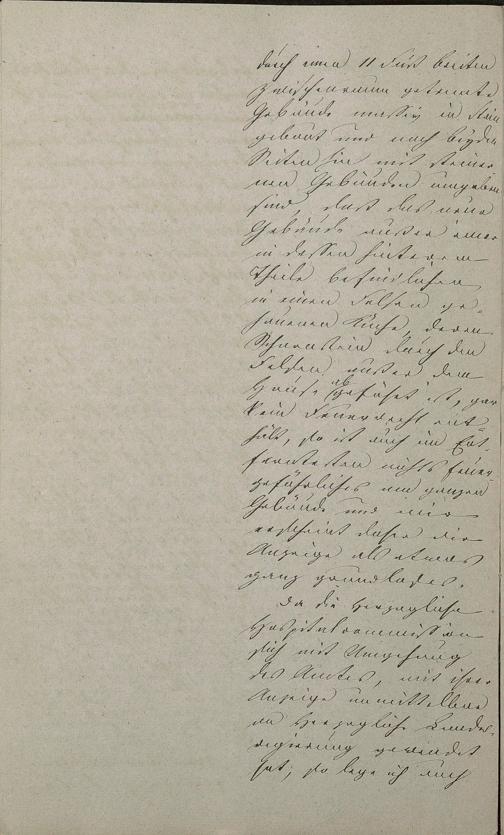 durch einen 11 Fuß breiten
Zwischenraum getrennte
Gebäude massiv in Stein
gebaut und nach beyden
Seiten hin mit steiner-
nen Gebäuden umgeben
sind, daß das neue
Gebäude außer einer
in dessen hinterem
Theile befindlichen
in einen Felsen ge-
hauenen Küche, deren
Schornstein durch den
Felsen außer dem
Hause abgeführt ist, gar
kein Feuerrecht ent-
hält, so ist auch im Ent-
ferntesten nichts feuer-
gefährliches am ganzen
Gebäude und mir
erscheint daher die
Anzeige als etwas
ganz grundloses.
Da die Herzogliche
Hospitalcommission
sich mit Umgehung
des Amtes, mit ihrer
Anzeige unmittelbar
an Herzogliche Landes-
regierung gewendet
hat; so lege ich auch